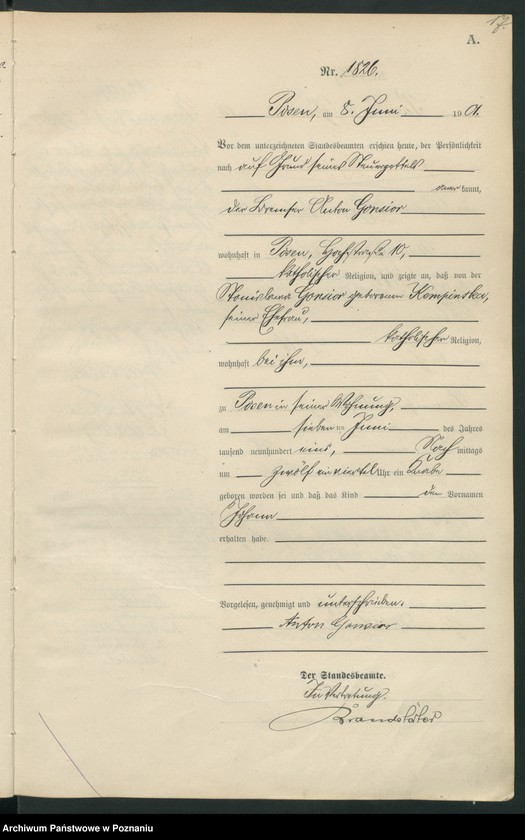 17.
A.
Nr. 1826.
Posen, am 8. Juni 190 1.
Vor dem unterzeichneten Standesbeamten erschien heute, der Persönlichkeit
nach auf Grund seines Steuerzettels
aner kannt,
der Bremser Anton Gonsior
wohnhaft in Posen,
katholischer Religion, und zeigte an, daß von der
Stanislawa Gonsior geborenen Kempinska,
seiner Ehefrau,
katholischer Religion,
wohnhaft bei ihm,
zu Posen in seiner Wohnung,
am sieben ten Juni des Jahres
tausend neunhundert eins, Nach mittags
um zwölf ein viertel Uhr ein Knabe
geboren worden sei und daß das Kind den Vornamen
Johann
erhalten habe.
Vorgelesen, genehmigt und unterschrieben.
Anton Gonsior
Der Standesbeamte.
In Vertretung.
Archiwum Państwowe w Poznaniu